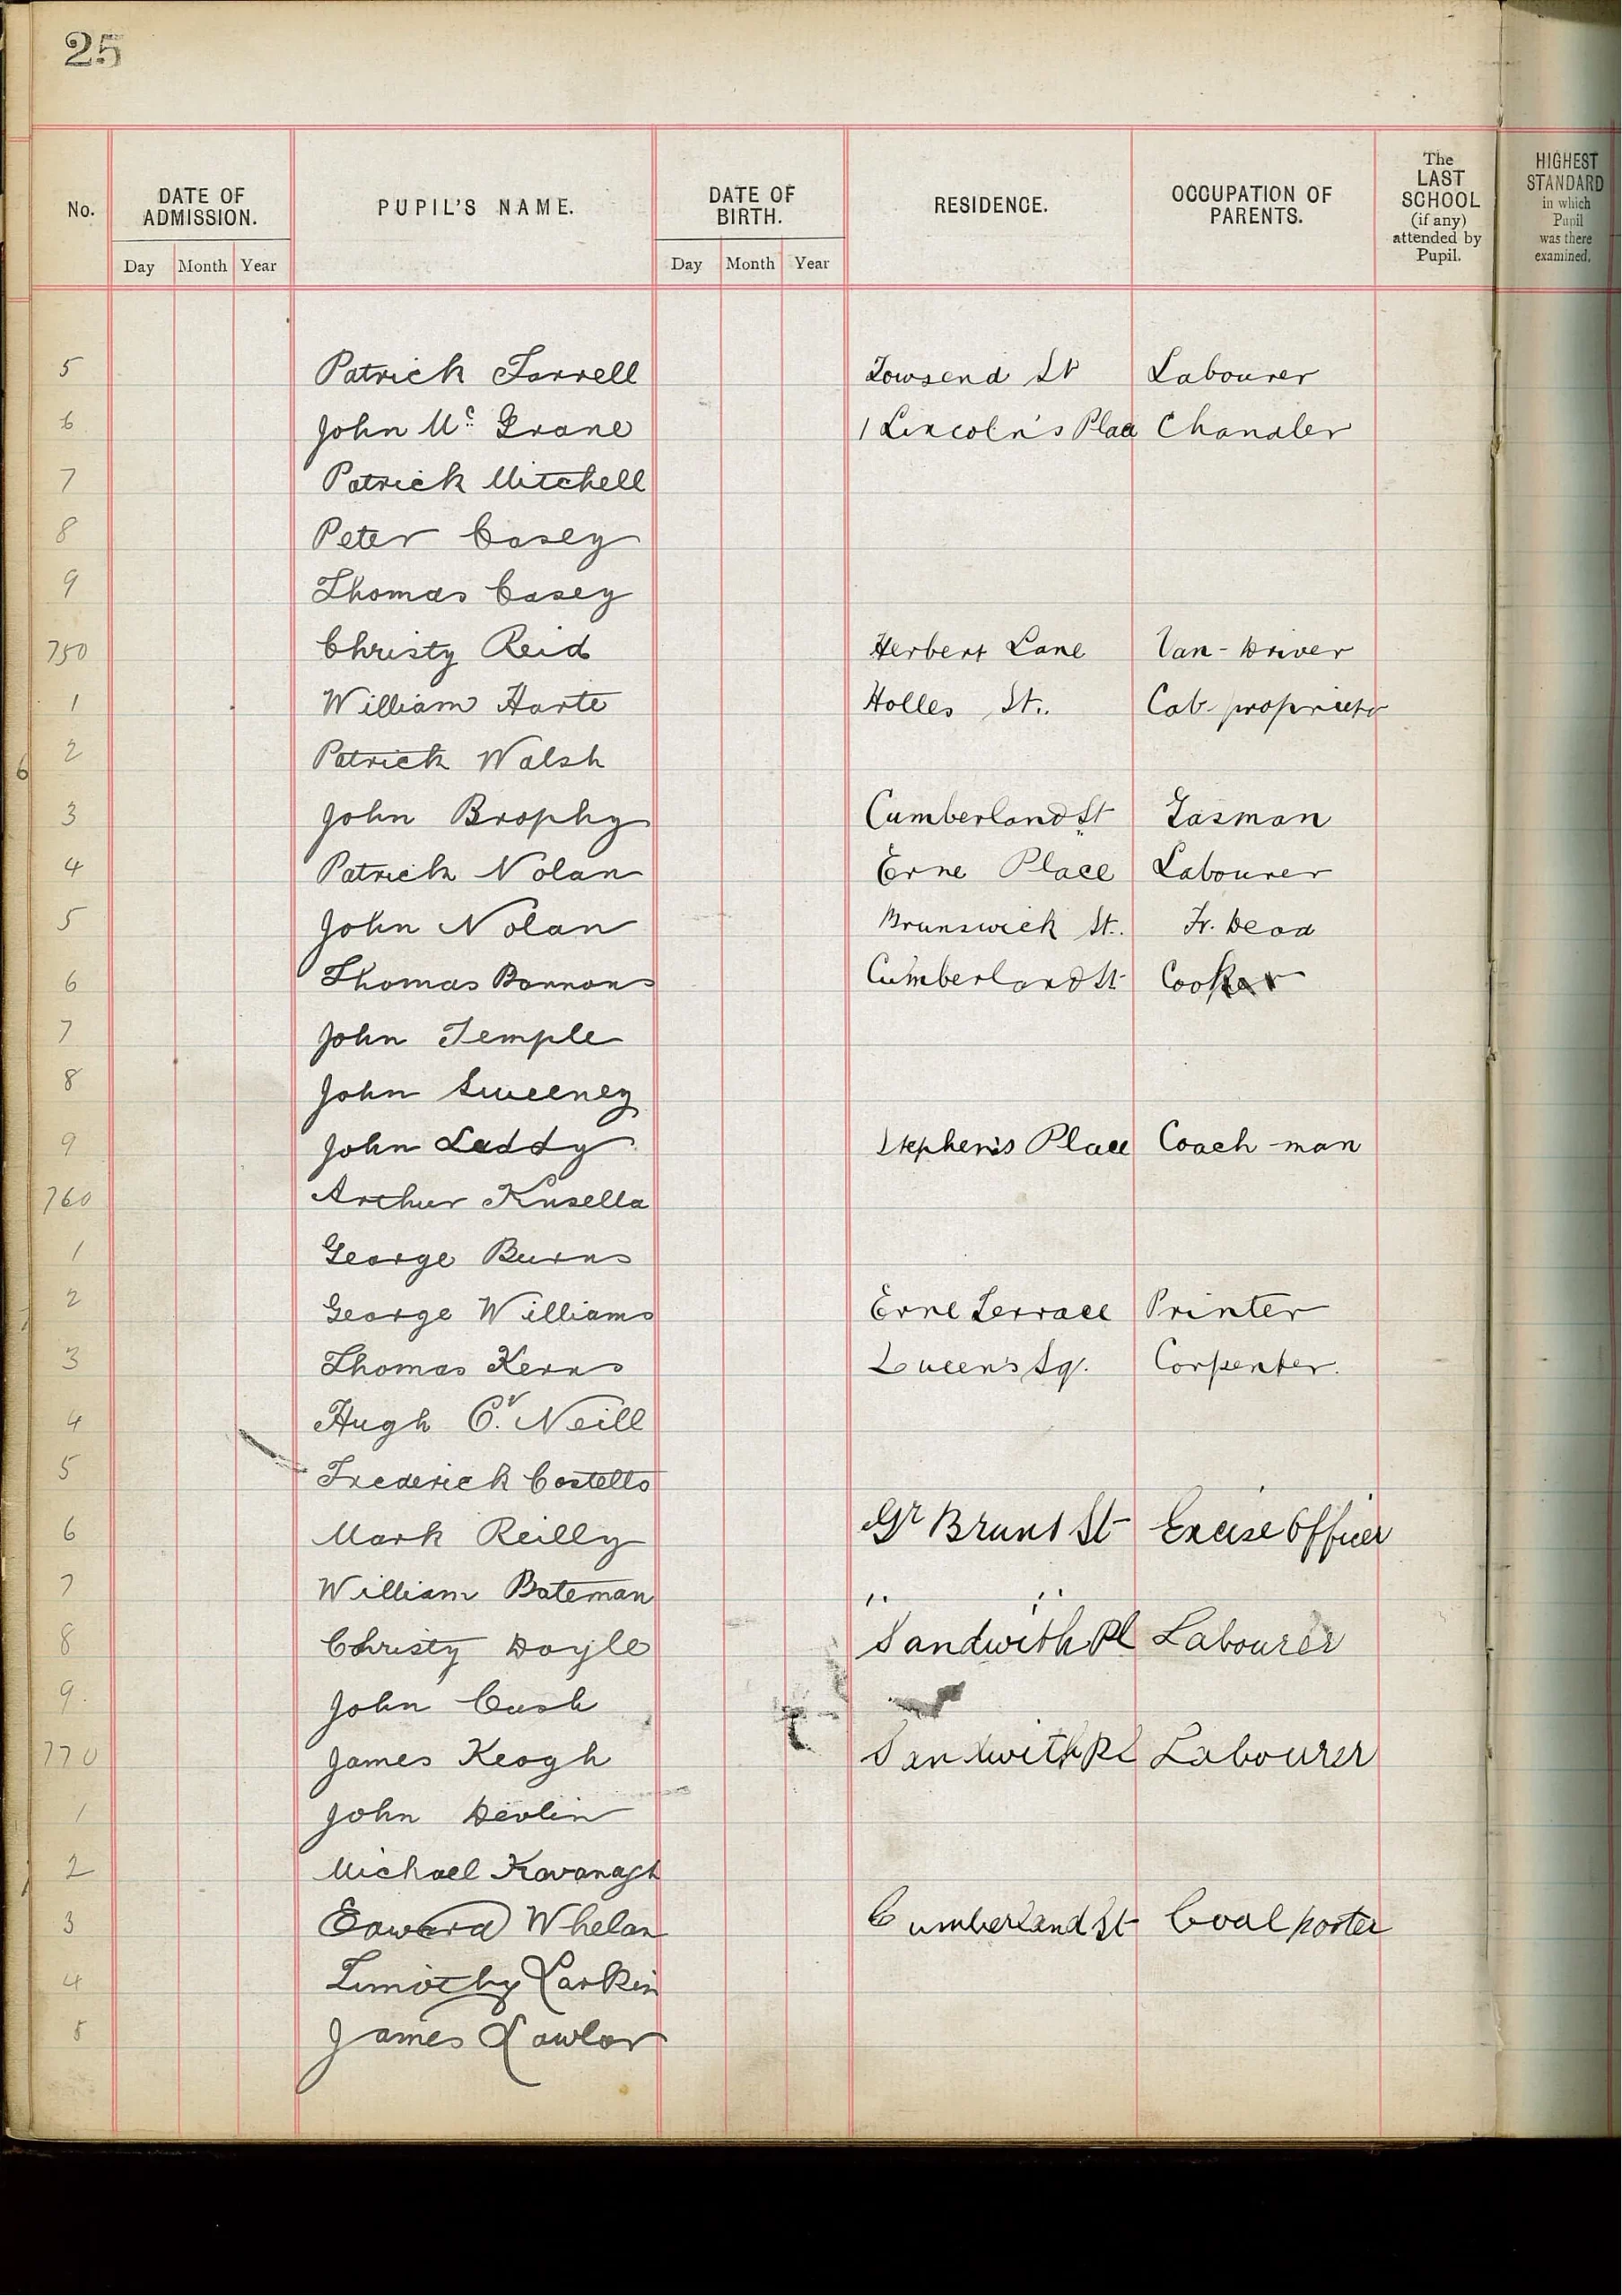 25
No. DATE OF ADMISSION. PUPIL'S NAME. DATE OF BIRTH. RESIDENCE. OCCUPATION OF PARENTS. The LAST SCHOOL (if any) attended by Pupil. HIGHEST STANDARD in which Pupil was there examined.
Day Month Year Day Month Year
5 Patrick Farrell Towsend St Labourer
6 John Mc Grane 1 Lincoln's Place Chandler
7 Patrick Mitchell
8 Peter Casey
9 Thomas Casey
750 Christy Reid Herbert Lane Van-Driver
1 William Harte Holles St. Cab-proprietor
2 Patrick Walsh
3 John Brophy Cumberland St Gasman
4 Patrick Nolan Erne Place Labourer
5 John Nolan Brunswick St. Fr. Dead
6 Thomas Bannons Cumberland St
7 John Temple
8 John Sweeney
9 John Leddy Stephen's Place Coach-man
760 Arthur Kinsella
1 George Burns
2 George Williams Erne Terrace Printer
3 Thomas Kerns Queen's Sq. Carpenter.
4 Hugh O'Neill
5 Frederick Costello
6 Mark Reilly Gr Bruns St Excise Officer
7 William Bateman " "
8 Christy Doyle Sandwith Pl Labourer
9. John Cush
770 James Keogh Sandwith Pl Labourer
1 John Devlin
2 Michael Kavanagh
3 Edward Whelan Cumberland St Coal porter
4 Timothy Larkin
5 James Lawlor